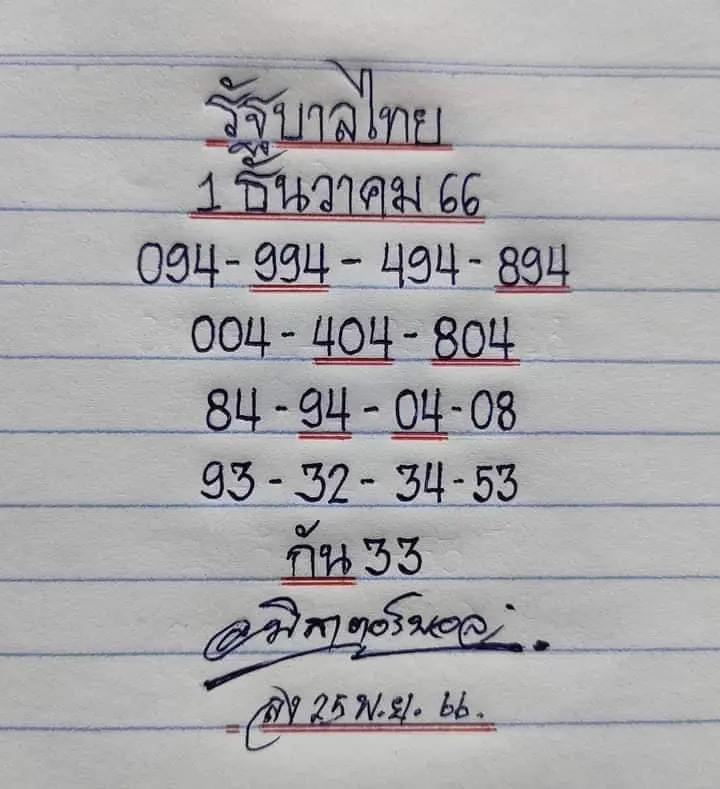 รัฐบาลไทย
1 ธันวาคม 66
094-994-494-894
004-404-804
84-94-04-08
93-32-34-53
กัน 33
ลง 25 พ.ย. 66.